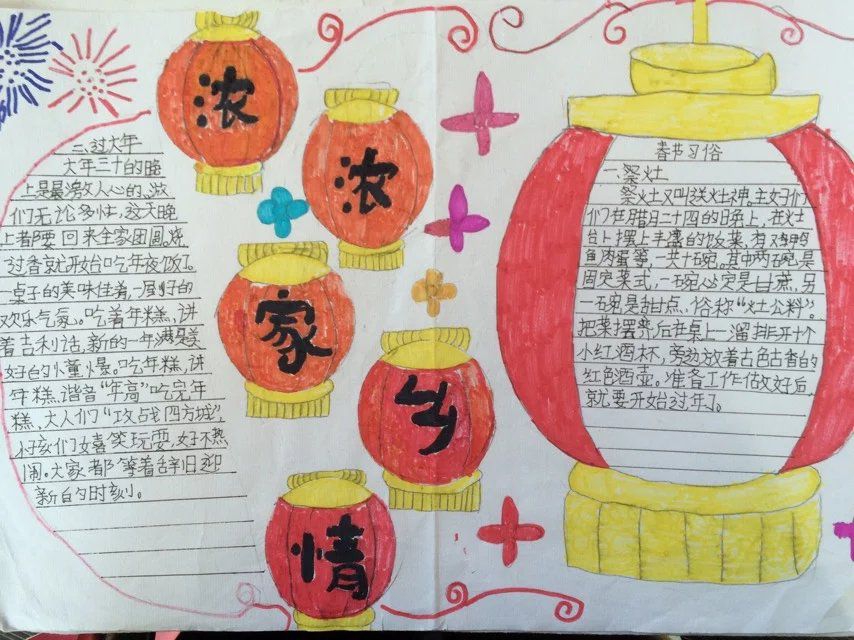 二、过大年
大年三十的晚
上是最激动人心的。游
们无论多忙，这天晚
上都要回来全家团圆。烧
过香就开始吃年夜饭了。
一桌子的美味佳肴，一屋子的
欢乐气氛。吃着年糕，讲
着吉利话，新的一年满是美
好的憧憬。吃年糕，讲
年糕，谐音“年高”吃完年
糕、大人们“攻战四方城”，
小孩们嬉笑玩耍，好不热
闹。大家都等着辞旧迎
新的时刻。
浓
浓
家
乡
情
春节习俗
一、祭灶
祭灶又叫送灶神。主妇们
们在腊月二十四的晚上，在灶
台上摆上丰盛的饭菜，有鸡鸭
鱼肉蛋等，一共十碗。其中两碗是
固定菜式，一碗必定是甘蔗，另
一碗是甜点，俗称“灶公料”。
把菜摆齐后在桌上一溜排开十个
小红酒杯，旁边放着古色古香的
红色酒壶。准备工作做好后，
就要开始过年了。